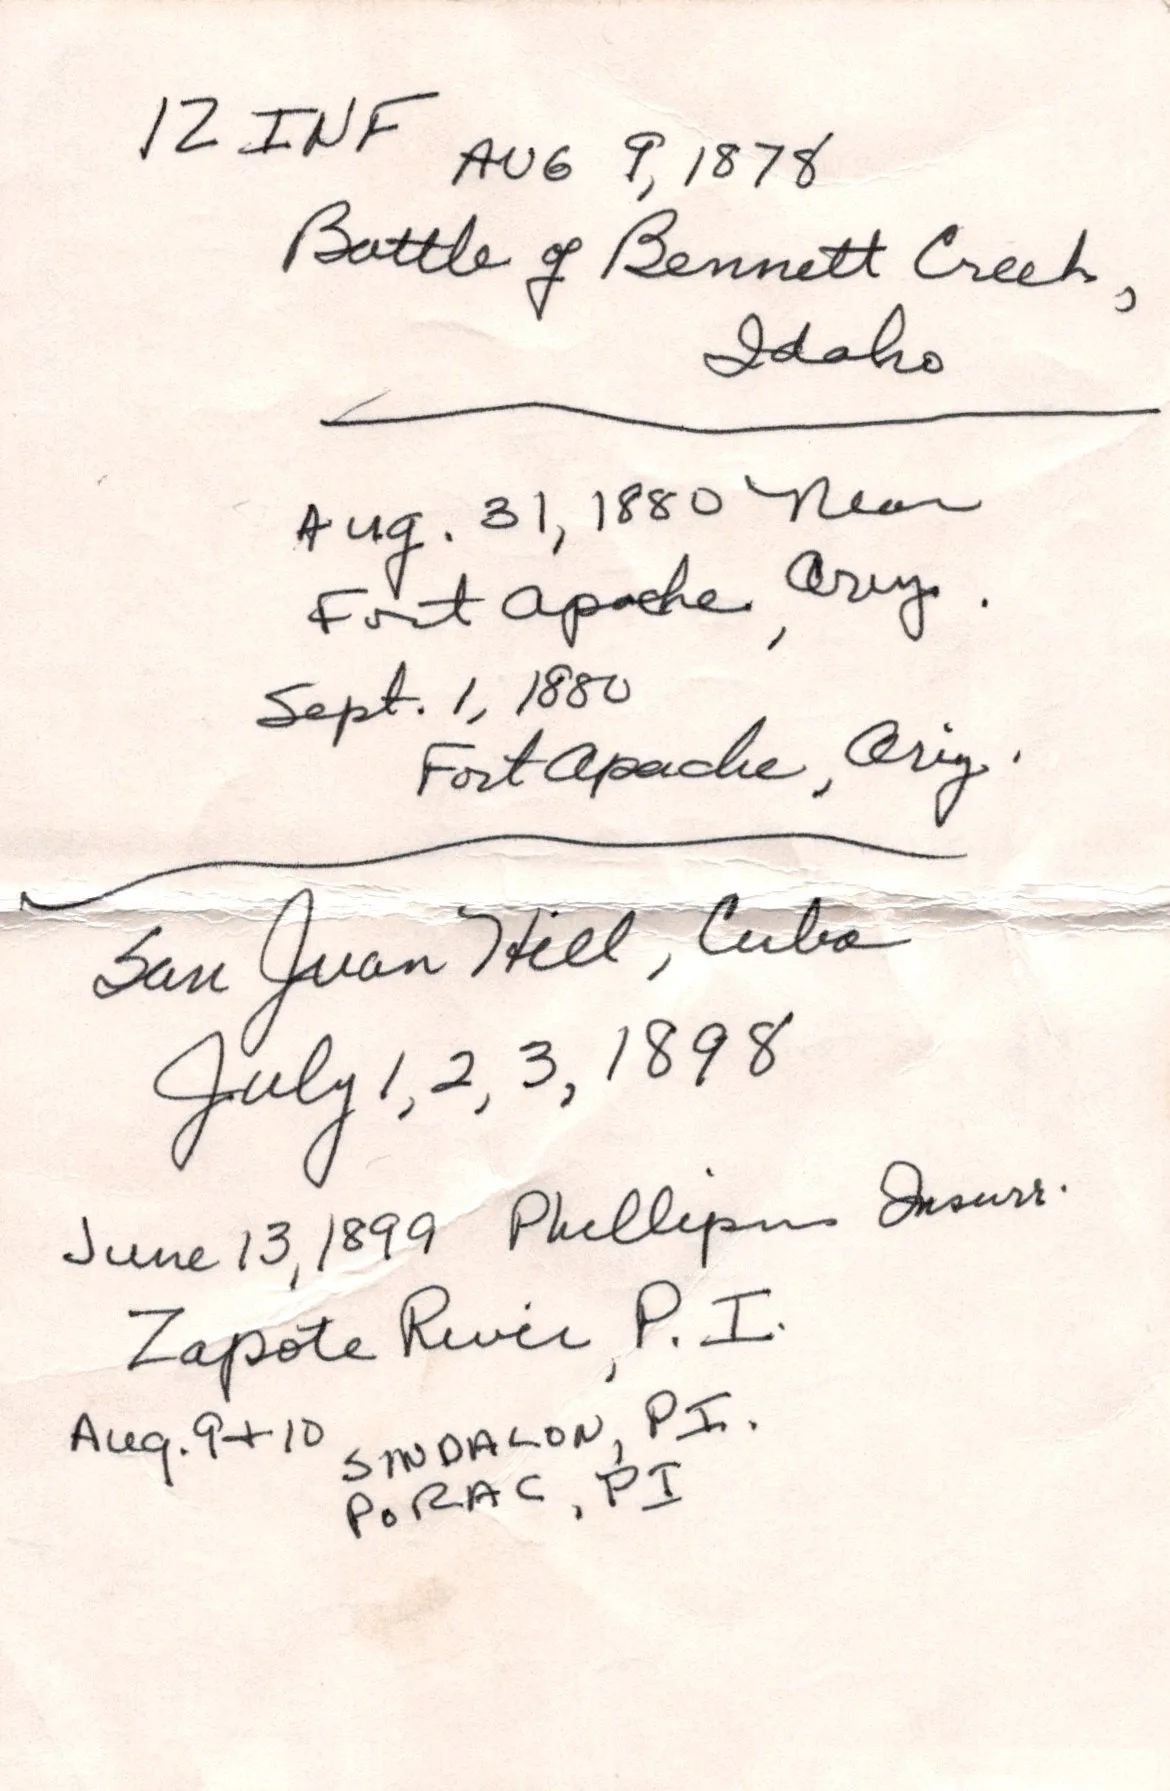 12 INF AUG 9, 1878
Battle of Bennett Creek,
Idaho
Aug. 31, 1880 Near
Fort Apache, Ariz.
Sept. 1, 1880
Fort Apache, Ariz.
San Juan Hill, Cuba
July 1, 2, 3, 1898
June 13, 1899 Phillipine Insurr.
Zapote River, P. I.
Aug. 9 + 10 SINDALON, P.I.
PORAC, PI